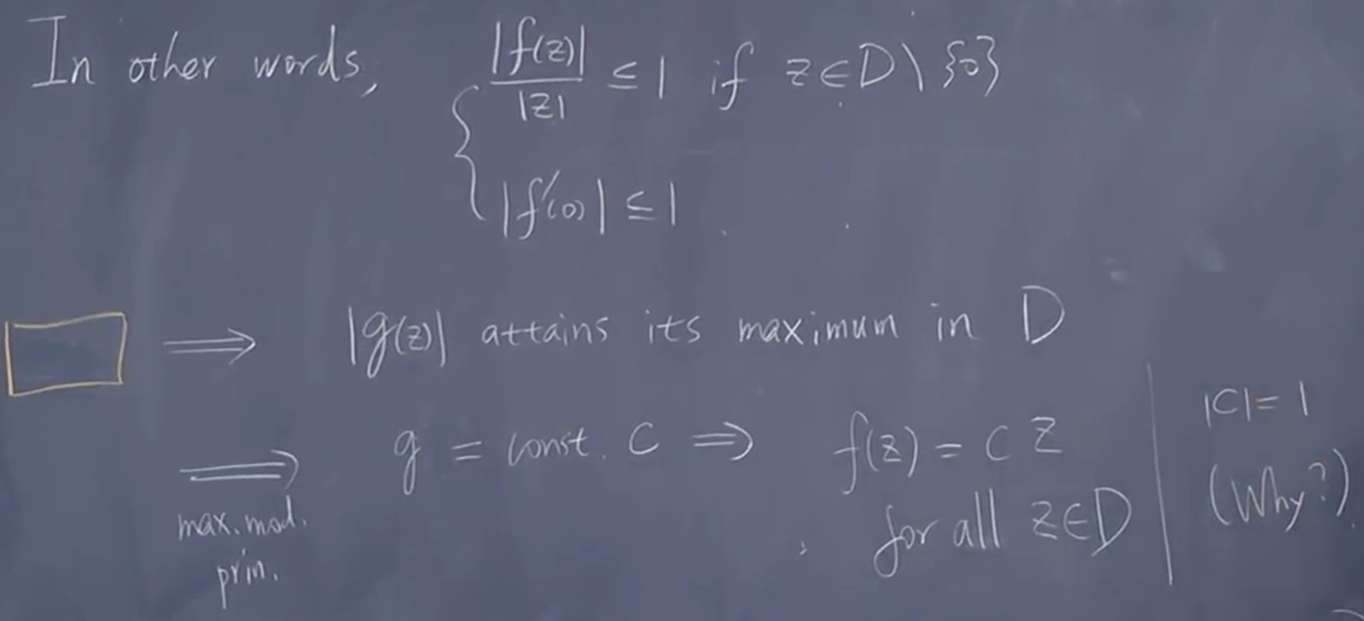 In other words, { |f(z)|/|z| ≤ 1 if z∈D\{0}
|f'(0)| ≤ 1
⟹ |g(z)| attains its maximum in D
⟹ max. mod. prin. g = const. C ⟹ f(z) = C z for all z∈D
|C| = 1
(Why?)